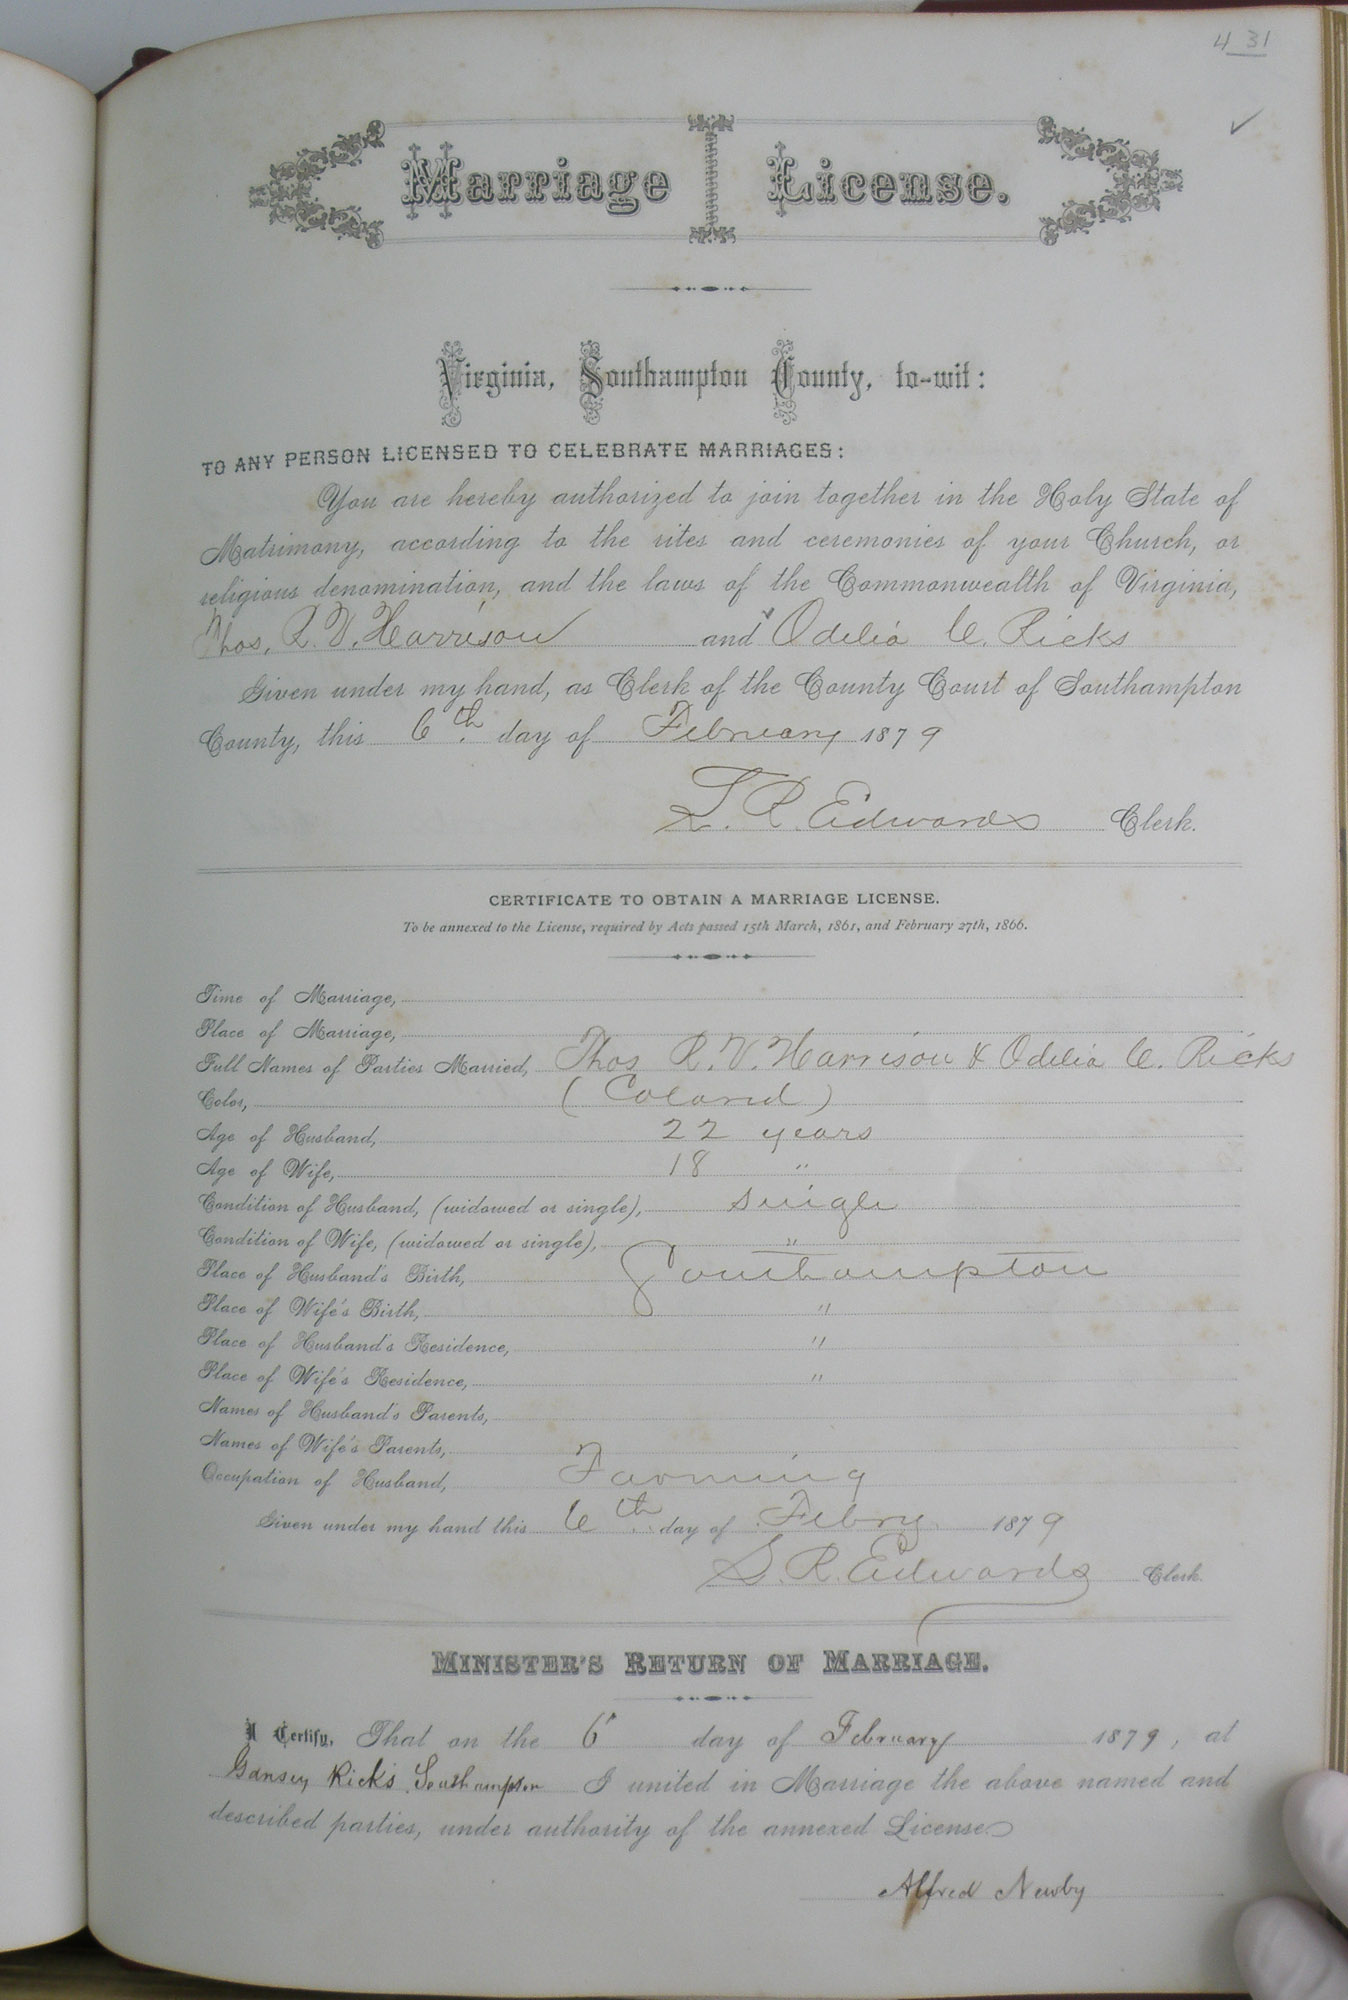 4 31
Marriage License.
Virginia, Southampton County, to-wit:
TO ANY PERSON LICENSED TO CELEBRATE MARRIAGES:
You are hereby authorized to join together in the Holy State of
Matrimony, according to the rites and ceremonies of your Church, or
religious denomination, and the laws of the Commonwealth of Virginia,
Thos. R. V. Harrison and Odelia C. Ricks
Given under my hand, as Clerk of the County Court of Southampton
County, this 6th day of February 1879
L. R. Edwards Clerk.
CERTIFICATE TO OBTAIN A MARRIAGE LICENSE.
To be annexed to the License, required by Acts passed 15th March, 1861, and February 27th, 1866.
Time of Marriage,
Place of Marriage,
Full Names of Parties Married, Thos R. V. Harrison & Odelia C. Ricks
Color, (Colored)
Age of Husband, 22 years
Age of Wife, 18 "
Condition of Husband, (widowed or single), single
Condition of Wife, (widowed or single), "
Place of Husband's Birth, Southampton
Place of Wife's Birth, "
Place of Husband's Residence, "
Place of Wife's Residence, "
Names of Husband's Parents,
Names of Wife's Parents,
Occupation of Husband, Farming
Given under my hand this 6th day of Febry 1879
L. R. Edwards Clerk.
MINISTER'S RETURN OF MARRIAGE.
I Certify, That on the 6 day of February 1879, at
Ricks Southampton I united in Marriage the above named and
described parties, under authority of the annexed License
Alfred Newby